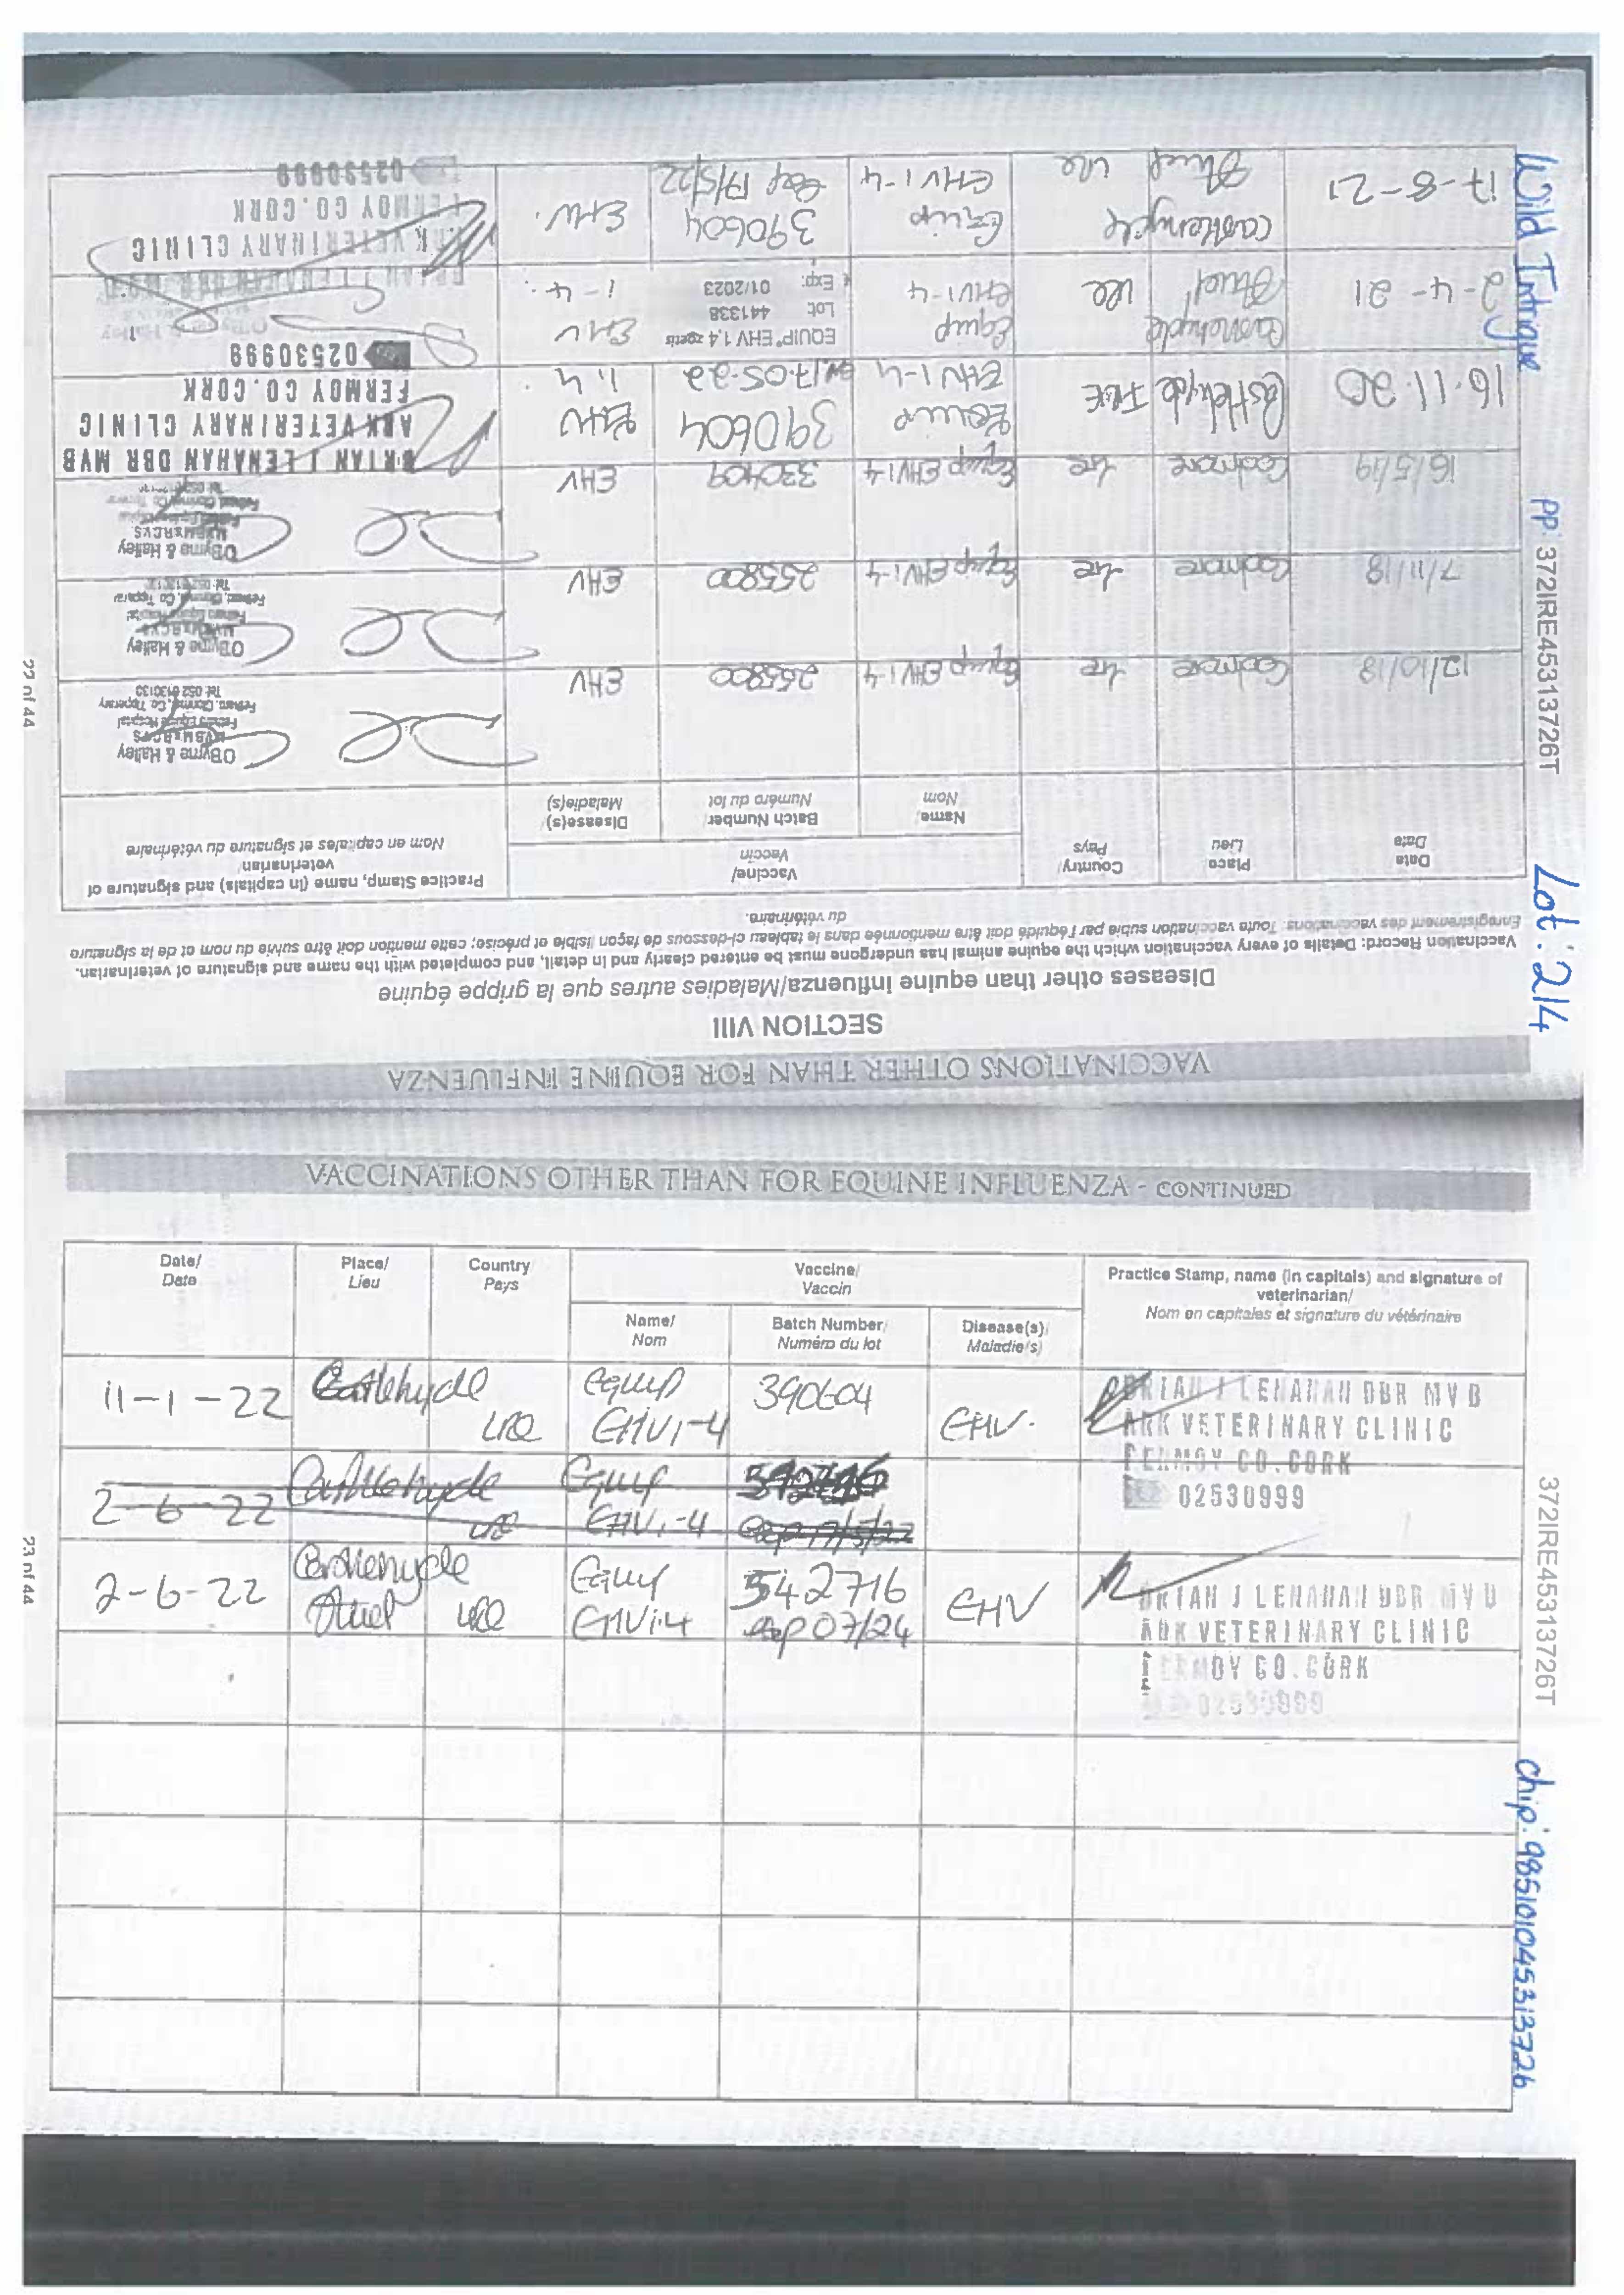 Wild Intrigue PP: 372IRE45313726T Lot: 214
VACCINATIONS OTHER THAN FOR EQUINE INFLUENZA
SECTION VIII
Diseases other than equine influenza/Maladies autres que la grippe équine
Vaccination Record: Details of every vaccination which the equine animal has undergone must be entered clearly and in detail, and completed with the name and signature of veterinarian.
Enregistrement des vaccinations: Toute vaccination subie par l'équidé doit être mentionnée dans le tableau ci-dessous de façon lisible et précise; cette mention doit être suivie du nom et de la signature
du vétérinaire.
Date Place Country/ Vaccine/ Practice Stamp, name (in capitals) and signature of
Date Lieu Pays Vaccin veterinarian/
Name Batch Number/ Disease(s)/ Nom en capitales et signature du vétérinaire
Nom Numéro du lot Maladie(s)
12/10/18 Coolmore Ire Equip EHV 1-4 255800 EHV
O'Byrne & Halley
MVB MxRCVS
Fethard Equine Hospital
Fethard, Clonmel, Co. Tipperary
Tel: 052 6130130
7/11/18 Coolmore Ire Equip EHV 1-4 255800 EHV
O'Byrne & Halley
MVB MxRCVS
Fethard Equine Hospital
Fethard, Clonmel, Co. Tipperary
16/5/19 Coolmore Ire Equip EHV 1-4 330409 EHV
O'Byrne & Halley
MVB MxRCVS
Fethard, Clonmel, Co. Tipperary
16.11.20 Castlehyde IRE Equip 390604 EHV
EHV 1-4 17.05.22 1.4
BRIAN J LENAHAN DBR MVB
ARK VETERINARY CLINIC
FERMOY CO. CORK
02530999
2-4-21 Castlehyde Equip EQUIP® EHV 1,4 zoetis EHV
EHV1-4 Lot: 441338 1-4
Exp: 01/2023
17-8-21 Castlehyde Equip 390604 EHV.
EHV 1-4 Exp 17/5/22
ARK VETERINARY CLINIC
FERMOY CO. CORK
02530999
22 of 44
VACCINATIONS OTHER THAN FOR EQUINE INFLUENZA - CONTINUED
Date/ Place/ Country Vaccine/ Practice Stamp, name (in capitals) and signature of
Date Lieu Pays Vaccin veterinarian/
Name/ Batch Number/ Disease(s)/ Nom en capitales et signature du vétérinaire
Nom Numéro du lot Maladie(s)
11-1-22 Castlehyde Equip 390604
EHV1-4 EHV.
BRIAN J LENAHAN DBR MVB
ARK VETERINARY CLINIC
FERMOY CO. CORK
02530999
2-6-22 Castlehyde Equip
EHV1-4 Exp 17/5/22
2-6-22 Castlehyde Equip 542716 EHV
EHV1.4 Exp 07/24
BRIAN J LENAHAN DBR MVB
ARK VETERINARY CLINIC
FERMOY CO. CORK
02530999
23 of 44
372IRE45313726T
chip: 985101045313726